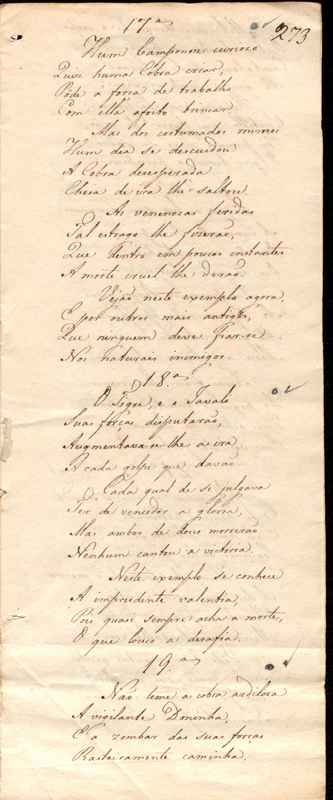 17.ª
273
Hum Camponez curiozo
Quiz huma Cobra criar,
Pôde á força de trabalho
Com ella afoito brincar.
Mas dos costumados mimos
Hum dia se descuidou
A Cobra desesperada
Cheia de ira lhe saltou.
As venenozas feridas
Tal estrago lhe fizerão,
Que dentro em poucos instantes
A morte cruel lhe derão.
Vejão neste exemplo agora,
E por outros mais antigos,
Que ninguem deve fiar-se
Nos naturaes inimigos.
18.ª
O Tigre, e o Javali
Suas forças disputarão,
Augmentava-se-lhe a ira
A cada golpe que davão
Cada qual de si julgava
Ser de vencedor a gloria,
Mas ambos de dous morrerão
Nenhum cantou a victoria.
Neste exemplo se conhece
A imprudente valentia,
Pois quasi sempre acha a morte,
O que louco a desafia.
19.ª
Não teme a cobra ardiloza
A vigilante Doninha,
E a zombar das suas forças
Rasteiramente caminha.